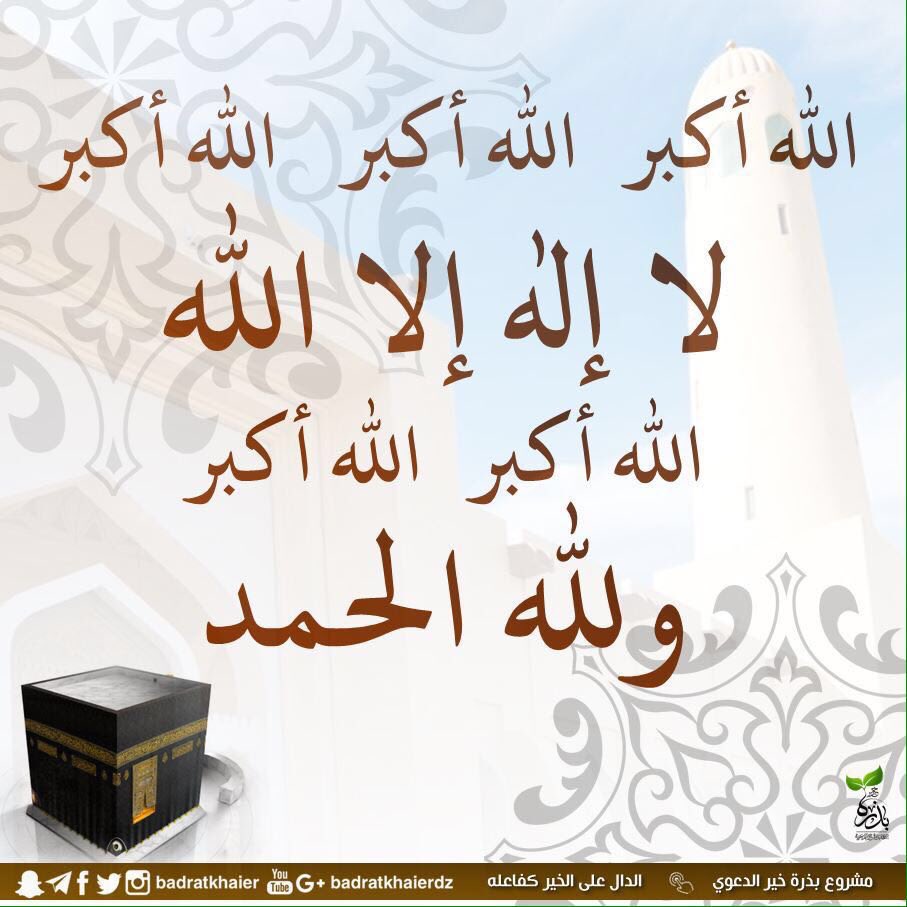 الله أكبر الله أكبر الله أكبر
لا إله إلا الله
الله أكبر الله أكبر
ولله الحمد
بذرة
مشروع بذرة خير الدعوي الدال على الخير كفاعله badratkhaierdz G+ You Tube badratkhaier